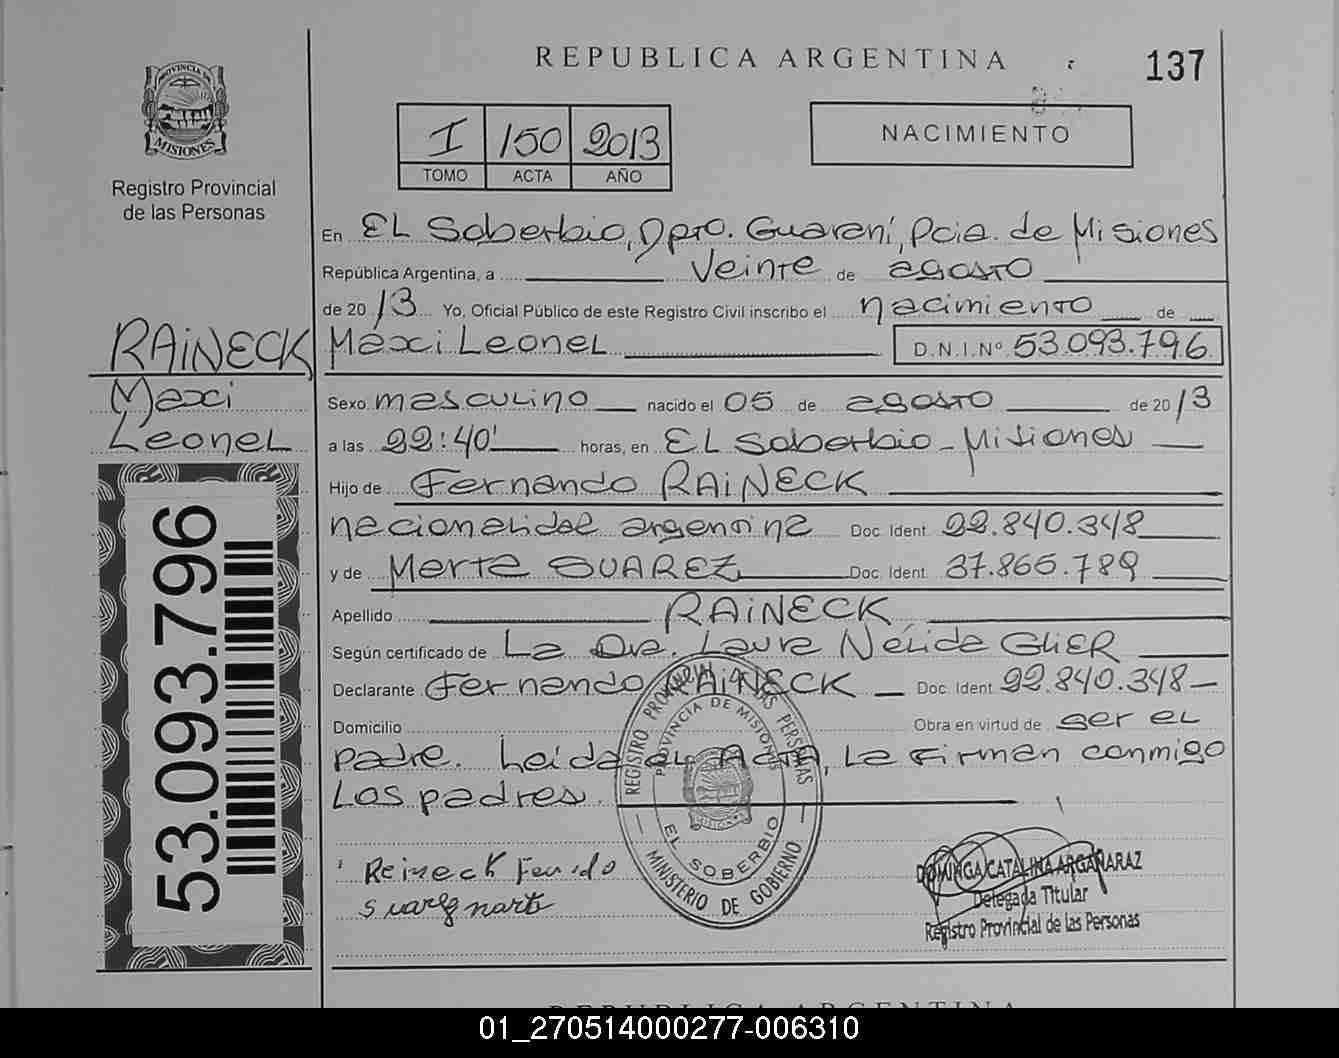 REPUBLICA ARGENTINA
137
PROVINCIA DE
MISIONES
Registro Provincial
de las Personas
I 150 2013
TOMO ACTA AÑO
NACIMIENTO
En EL Soberbio, Dpto. Guaraní, Pcia. de Misiones
República Argentina, a veinte de agosto
de 2013 Yo, Oficial Público de este Registro Civil inscribo el nacimiento de
RAiNECK Maxi Leonel D.N.I.Nº 53.093.796
Maxi
Leonel
Sexo masculino nacido el 05 de agosto de 2013
a las 22:40' horas, en EL Soberbio - Misiones
Hijo de Fernando RAiNECK
nacionalidad argentina Doc. Ident. 22.840.348
y de Marta SUAREZ Doc. Ident. 37.865.789
Apellido RAiNECK
Según certificado de La Dra. Laura Nélida GLIER
Declarante Fernando RAiNECK Doc. Ident. 22.840.348
Domicilio Obra en virtud de ser el
padre. Leída el Acta, la firman conmigo
los padres.
53.093.796
REGISTRO PROVINCIAL DE LAS PERSONAS
PROVINCIA DE MISIONES
EL SOBERBIO
MINISTERIO DE GOBIERNO
Reineck
DOMINGA CATALINA ARGAÑARAZ
Delegada Titular
Registro Provincial de las Personas
REPUBLICA ARGENTINA
01_270514000277-006310